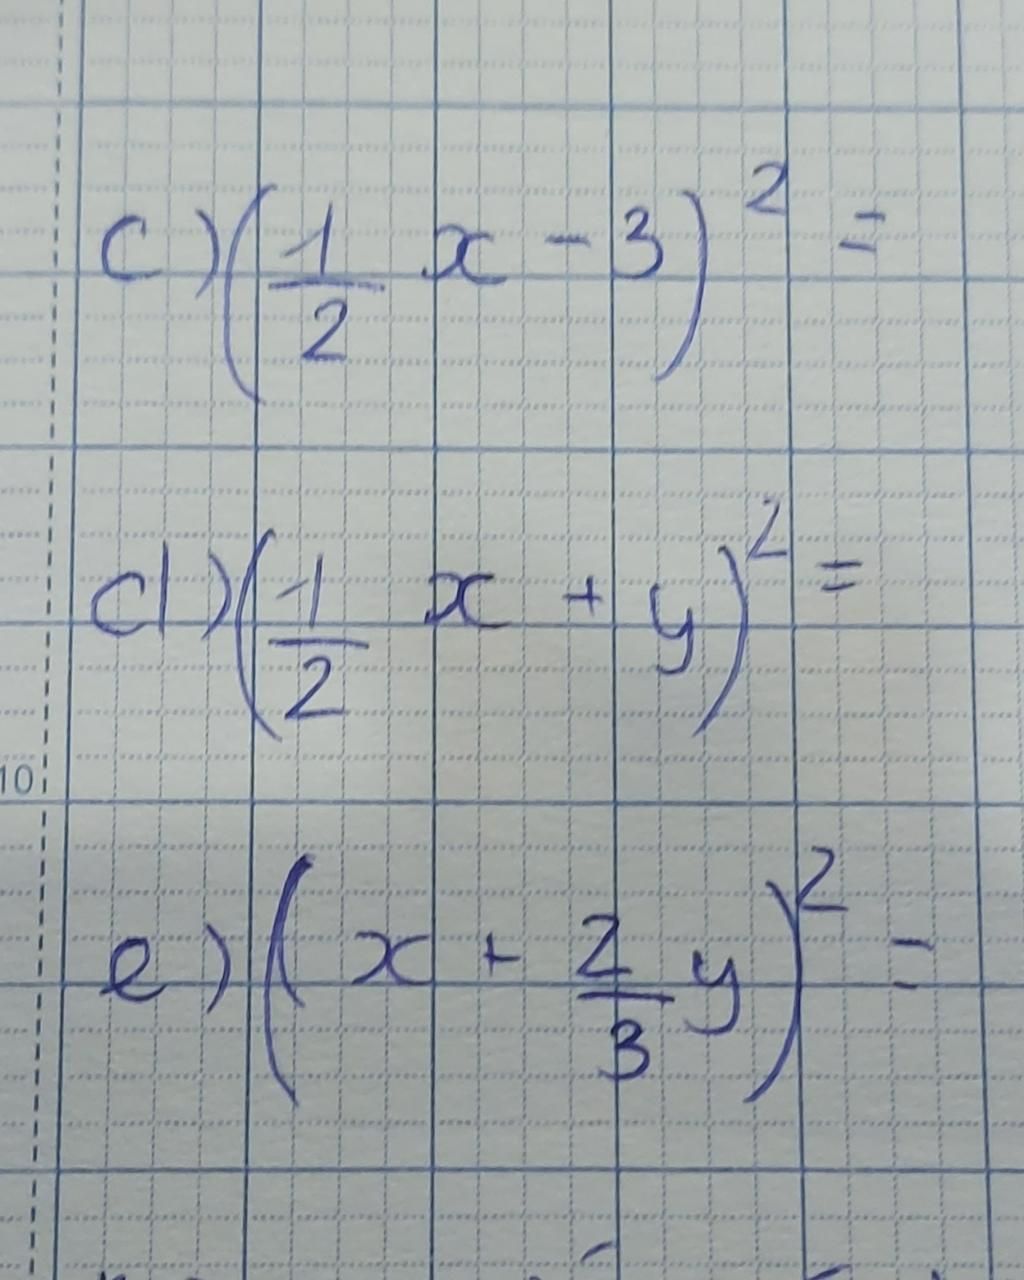 c) (1/2 x - 3)² =
d) (1/2 x + y)² =
10
e) (x + 2/3 y)² =